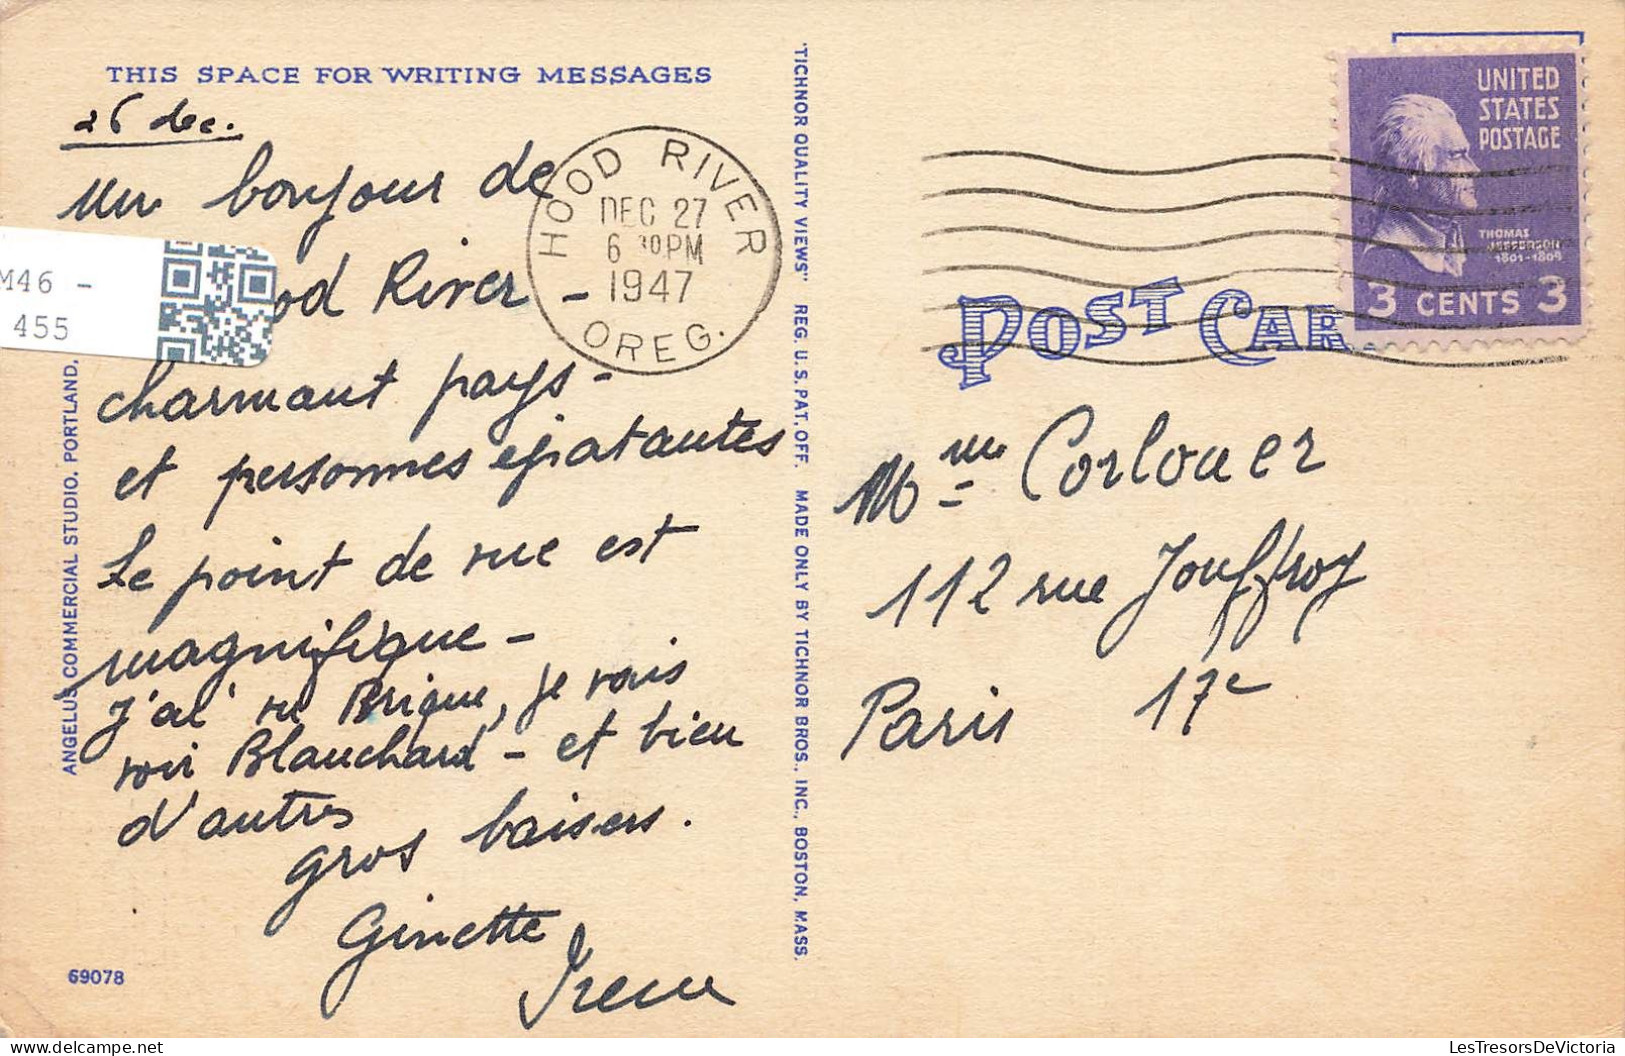 THIS SPACE FOR WRITING MESSAGES
26 dec.
Un bonjour de
ood River -
charmant pays -
et personnes épatantes
Le point de vue est
magnifique -
J'ai vu Brique, je vais
voir Blanchard - et bien
d'autres
gros baisers.
Ginette
Irene
69078
M46 -
455
ANGELUS COMMERCIAL STUDIO, PORTLAND,
"TICHNOR QUALITY VIEWS" REG. U.S. PAT. OFF. MADE ONLY BY TICHNOR BROS., INC., BOSTON, MASS.
HOOD RIVER
DEC 27
6 30PM
1947
OREG.
POST CAR
UNITED
STATES
POSTAGE
THOMAS
JEFFERSON
1801-1809
3 CENTS 3
Mme Corlouer
112 rue Jouffroy
Paris 17e
LesTresorsDeVictoria